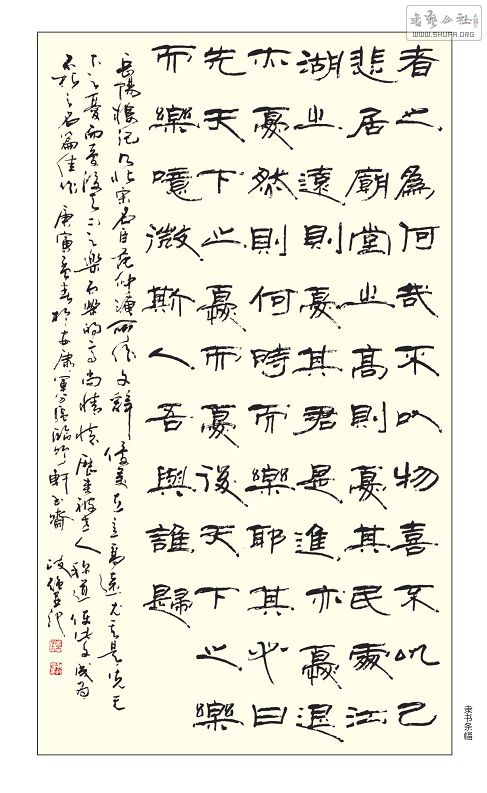 書藝公社
WWW.SHUFA.ORG
者之為何哉不以物喜不以己
悲居廟堂之高則憂其民處江
湖之遠則憂其君是進亦憂退
亦憂然則何時而樂耶其必曰
先天下之憂而憂後天下之樂
而樂噫微斯人吾與誰歸
岳陽樓記乃北宋名臣范仲淹所作文辭優美立意高遠尤其是先天
下之憂而憂後天下之樂而樂的高尚情懷歷來被世人稱道使此文成為
不朽之名篇佳作庚寅孟春於安康軍分區臨竹軒書齋
隶书条幅